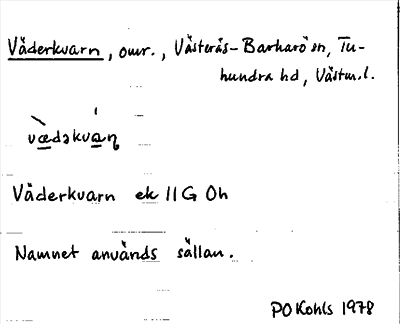 Väderkvarn, omr., Västerås-Barkarö sn, Tu-
hundra hd, Västm. l.
vædəkvaɳ
Väderkvarn ek 11G 0h
Namnet används sällan.
PO Kohls 1978